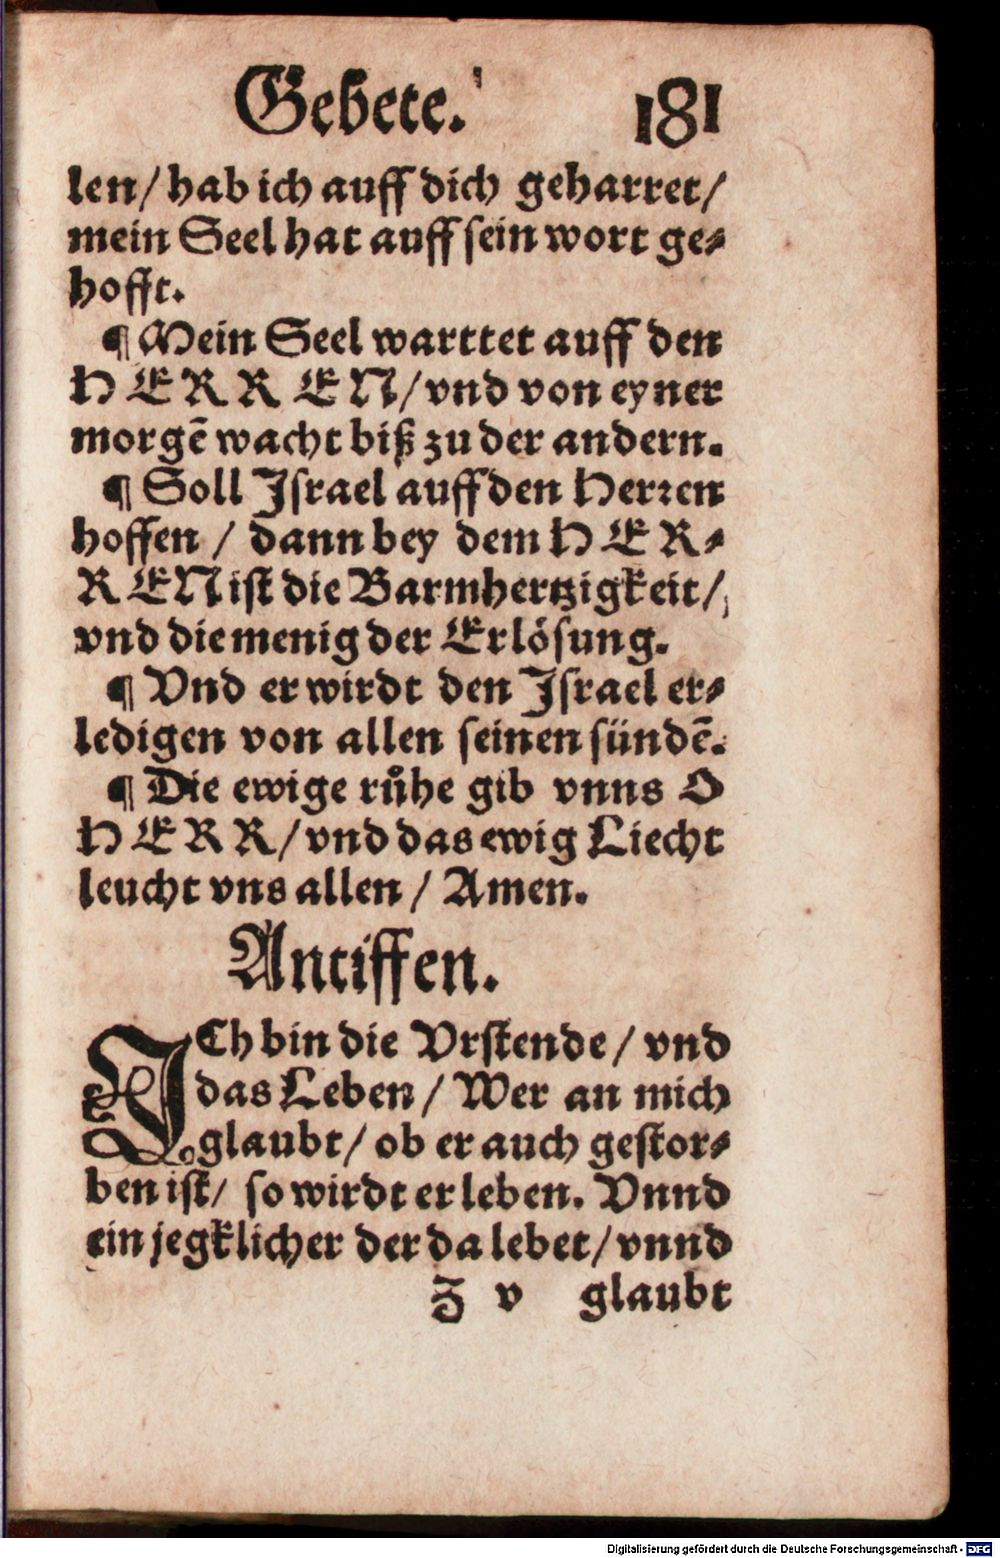 Gebete. 181
len/ hab ich auff dich geharret/
mein Seel hat auff sein wort ge⸗
hofft.
¶ Mein Seel warttet auff den
HERREN/ vnd von eyner
morgẽ wacht biß zu der andern.
¶ Soll Israel auff den Herꝛen
hoffen / dann bey dem HER⸗
REN ist die Barmhertzigkeit/
vnd die menig der Erlösung.
¶ Vnd er wirdt den Israel er⸗
ledigen von allen seinen sündẽ.
¶ Die ewige růhe gib vnns O
HERR/ vnd das ewig Liecht
leucht vns allen / Amen.
Antiffen.
ICh bin die Vrstende / vnd
das Leben / Wer an mich
glaubt/ ob er auch gestor⸗
ben ist/ so wirdt er leben. Vnnd
ein jegklicher der da lebet/ vnnd
Z v glaubt
Digitalisierung gefördert durch die Deutsche Forschungsgemeinschaft - DFG